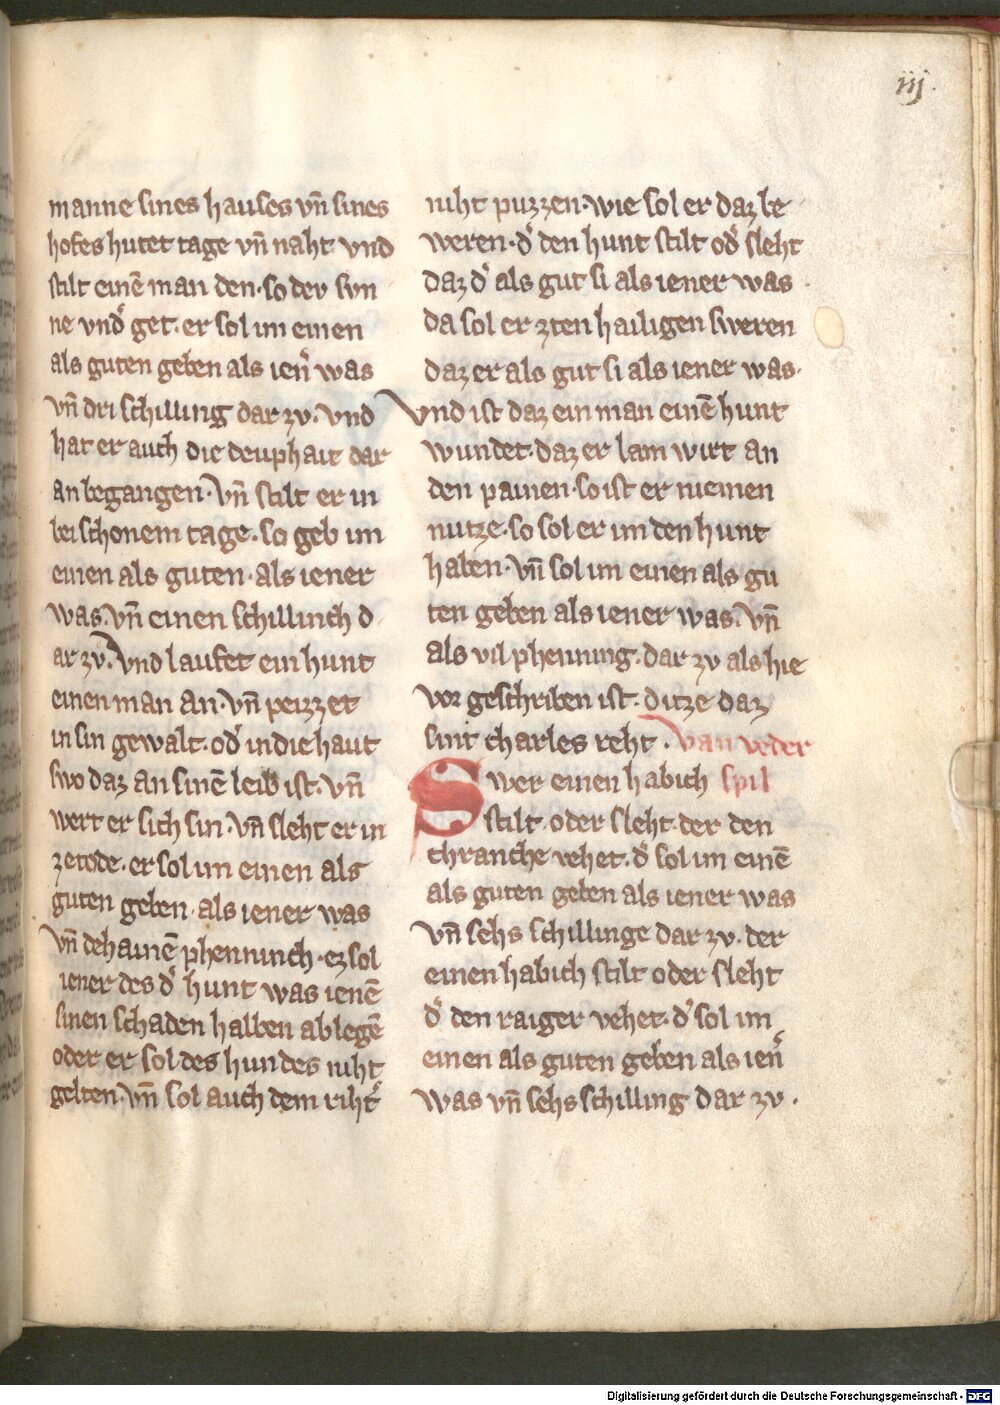 iij.
manne sines hauses vn̄ sines
hofes hutet tage vn̄ naht vnd
stilt einē man den · so dev svn
ne vnd͛ get · er sol im einen
als guten geben als ien͛ was
vn̄ dri schilling dar zv · vnd
hat er auch die deuphait dar
an begangen · vn̄ stilt er in
bei schonem tage · so geb im
einen als guten · als iener
was · vn̄ einen schillinch d
ar zv · vnd laufet ein hunt
einen man an · vn̄ peizzet
in sin gewalt · od͛ in die haut
swo daz an sinē leib ist · vn̄
wert er sich sin · vn̄ sleht er in
ze tode · er sol im einen als
guten geben · als iener was
vn̄ dehainē phenninch · ez sol
iener des d͛ hunt was ienē
sinen schaden halben ablegē
oder er sol des hundes niht
gelten · vn̄ sol auch dem riht͛
niht puzzen · wie sol er daz be
weren · d͛ den hunt stilt od͛ sleht
daz d͛ als gut si als iener was ·
da sol er zten hailigen sweren
daz er als gut si als iener was ·
vnd ist daz ein man einē hunt
wundet · daz er lam wirt an
den painen · so ist er niemen
nutze · so sol er im den hunt
haben · vn̄ sol im einen als gu
ten geben als iener was · vn̄
als vil phenning · dar zv als hie
vor geschriben ist · ditze daz
sint charles reht · van veder
swer einen habich spil
stilt · oder sleht · der den
chranche vehet · d͛ sol im einē
als guten geben als iener was
vn̄ sehs schillinge dar zv · der
einen habich stilt oder sleht
d͛ den raiger vehet · d͛ sol im
einen als guten geben als ien͛
was vn̄ sehs schilling dar zv ·
Digitalisierung gefördert durch die Deutsche Forschungsgemeinschaft - DFG